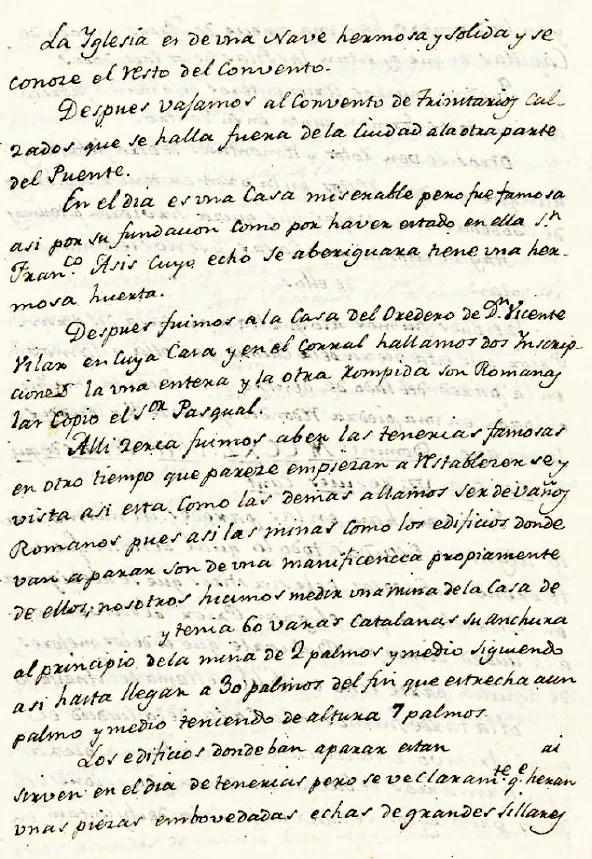 La Yglesia es de vna Nave hermosa y solida y se
conoze el resto del Convento.
Despues vajamos al Convento de Trinitarios Cal-
zados que se halla fuera de la Ciudad ala otra parte
del Puente.
En el dia es vna Casa miserable pero fue famosa
asi por su fundacion Como por haver estado en ella Sn
Franco Asis Cuyo echo se aberiguara tiene vna her-
mosa huerta.
Despues fuimos a la Casa del Oredero de Dn Vicente
Vilar en Cuya Casa y en el Corral hallamos dos Inscrip-
ciones la vna entera y la otra Rompida son Romanas
las Copio el Sor Pasqual.
Alli zerca fuimos aber las tenerias famosas
en otro tiempo que pareze empiezan a restablezerse y
vista asi esta Como las demas allamos ser de vaños
Romanos pues asi las minas Como los edificios donde
van a parar son de vna manificencca propiamente
de ellos; nosotros hicimos medir vna mina de la Casa de
y tenia 60 varas Catalanas su anchura
al principio de la mina de 2 palmos y medio siguiendo
asi hasta llegar a 30 palmos del fin que estrecha aun
palmo y medio teniendo de altura 7 palmos.
Los edificios donde ban aparar estan ai
sirven en el dia de tenerias pero se ve claramte qe heran
vnas piezas embovedadas echas de grandes sillares